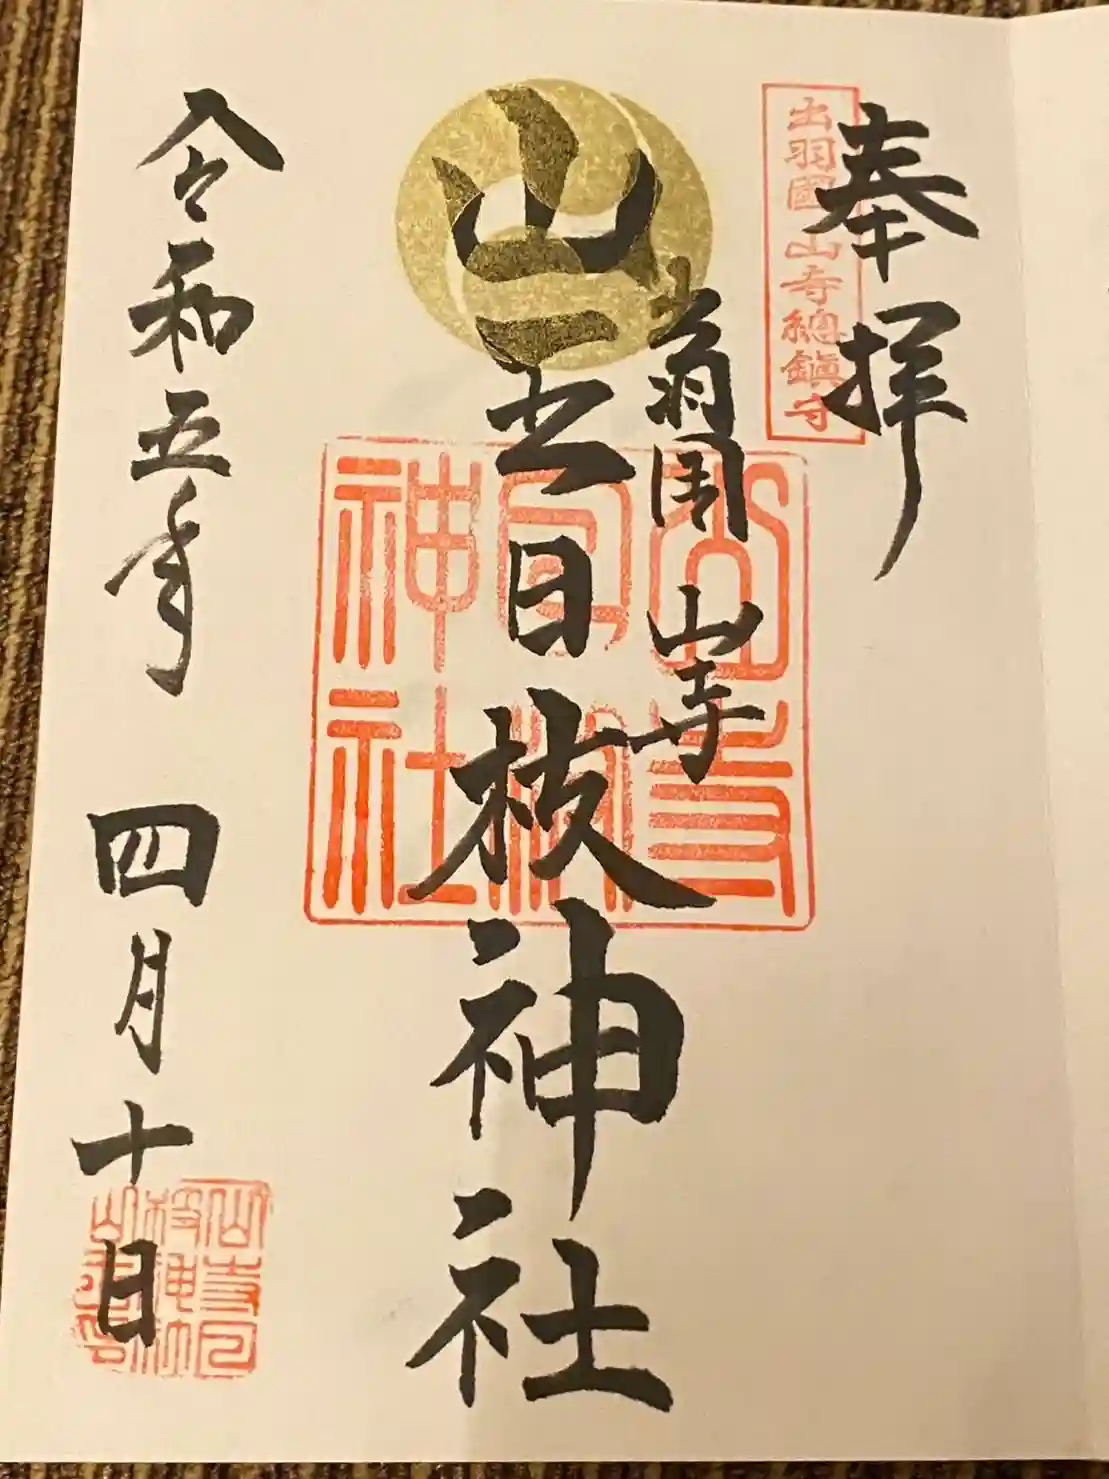 奉拝
出羽國 山寺總鎮守
出羽国 山寺
山王日枝神社
山寺
日枝
神社
令和五年 四月十日
山寺日
枝神社